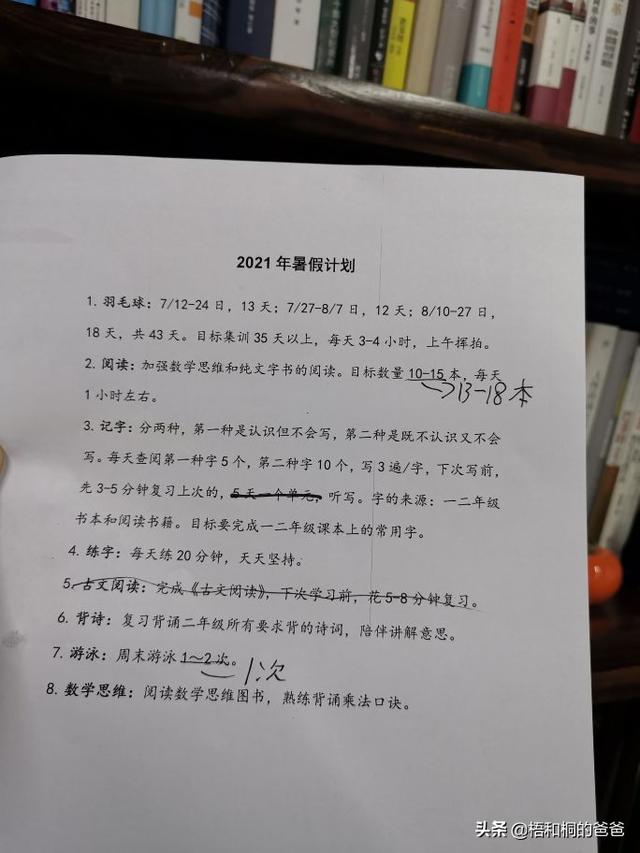 2021年暑假计划
1. 羽毛球：7/12-24日，13天；7/27-8/7日，12天；8/10-27日，
18天，共43天。目标集训35天以上，每天3-4小时，上午挥拍。
2. 阅读：加强数学思维和纯文字书的阅读。目标数量10-15本，每天
13-18本
1小时左右。
3. 记字：分两种，第一种是认识但不会写，第二种是既不认识又不会
写。每天查阅第一种字5个，第二种字10个，写3遍/字，下次写前，
先3-5分钟复习上次的，5天一个单元，听写。字的来源：一二年级
书本和阅读书籍。目标要完成一二年级课本上的常用字。
4. 练字：每天练20分钟，天天坚持。
5. 古文阅读：完成《古文阅读》，下次学习前，花5-8分钟复习。
6. 背诗：复习背诵二年级所有要求背的诗词，陪伴讲解意思。
7. 游泳：周末游泳1～2次。
1次
8. 数学思维：阅读数学思维图书，熟练背诵乘法口诀。
头条@梧和桐的爸爸